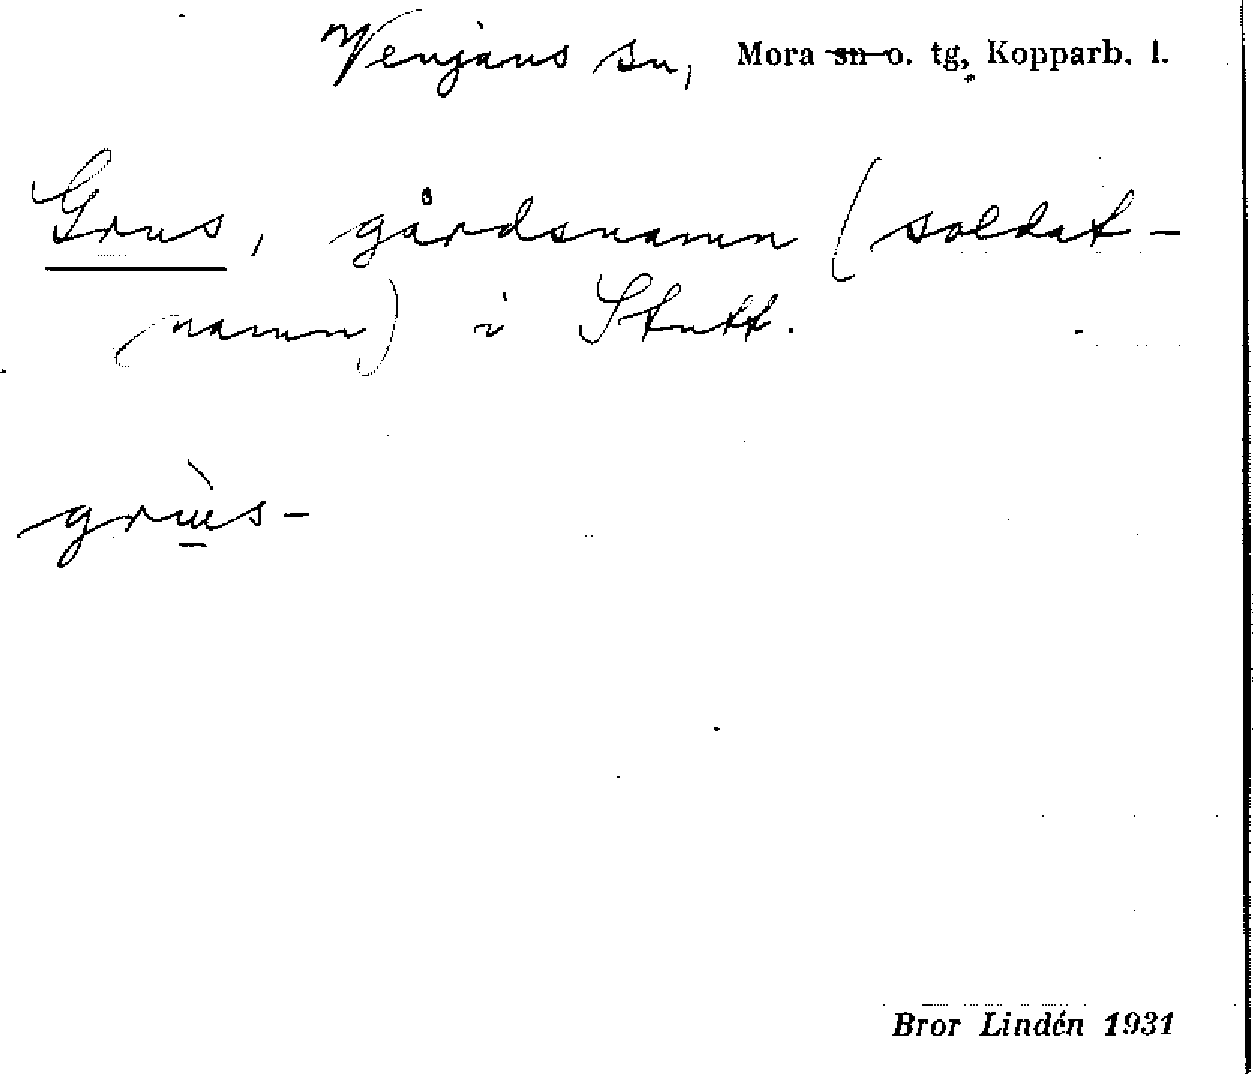 Venjans sn, Mora sn o. tg, Kopparb. l.
Grus, gårdsnamn (soldat-
namn) i Stutt.
grùs-
Bror Lindén 1931